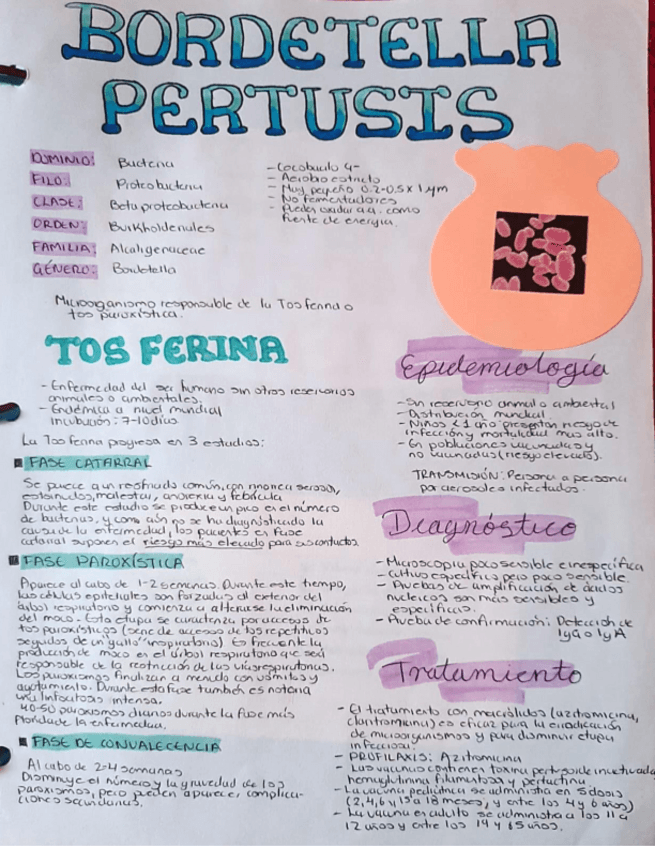 BORDETELLA
PERTUSIS
DOMINIO: Bacteria
FILO: Proteobacteria
CLASE: Betaproteobacteria
ORDEN: Burkholderiales
FAMILIA: Alcaligenaceae
GÉNERO: Bordetella
- Cocobacilo G-
- Aerobio estricto
- Muy pequeño 0.2-0.5 x 1 µm
- No fermentadores
- Pueden oxidar aa. como
fuente de energía.
Microorganismo responsable de la Tos ferina o
tos paroxística.
TOS FERINA
- Enfermedad del ser humano sin otros reservorios
animales o ambientales.
- Endémica a nivel mundial
Incubación: 7-10 días
La Tos ferina progresa en 3 estadios:
FASE CATARRAL
Se parece a un resfriado común, con rinorrea serosa,
estornudos, malestar, anorexia y febrícula
Durante este estadio se produce un pico en el número
de bacterias, y como aún no se ha diagnosticado la
causa de la enfermedad, los pacientes en fase
catarral suponen el riesgo más elevado para sus contactos.
FASE PAROXÍSTICA
Aparece al cabo de 1-2 semanas. Durante este tiempo,
las células epiteliales son forzadas al exterior del
árbol respiratorio y comienza a alterarse la eliminación
del moco. Esta etapa se caracteriza por accesos de
tos paroxísticos (serie de accesos de tos repetitivos
seguidos de un "gallo" inspiratorio) Es frecuente la
producción de moco en el árbol respiratorio que sea
responsable de la restricción de las vías respiratorias.
Los paroxismos finalizan a menudo con vómitos y
agotamiento. Durante esta fase también es notoria
una linfocitosis intensa.
40-50 paroxismos diarios durante la fase más
florida de la enfermedad.
FASE DE CONVALECENCIA
Al cabo de 2-4 semanas
Disminuye el número y la gravedad de los
paroxismos, pero pueden aparecer complica-
ciones secundarias.
Epidemiología
- Sin reservorio animal o ambiental
- Distribución mundial.
- Niños < 1 año presentan riesgo de
infección y mortalidad mas alto.
- En poblaciones vacunadas y
no vacunadas (riesgo elevado).
TRANSMISIÓN: Persona a persona
por aerosoles infectados.
Diagnóstico
- Microscopia poco sensible e inespecífica
- Cultivo específico pero poco sensible.
- Pruebas de amplificación de ácidos
nucleicos son más sensibles y
específicas.
- Prueba de confirmación: Detección de
IgG o IgA
Tratamiento
- El tratamiento con macrólidos (azitromicina,
claritromicina) es eficaz para la erradicación
de microorganismos y para disminuir etapa
infecciosa.
- PROFILAXIS: Azitromicina
- Las vacunas contienen toxina pertussis inactivada,
hemaglutinina filamentosa y pertactina
- La vacuna pediátrica se administra en 5 dosis
(2,4,6 y 15 a 18 meses, y entre los 4 y 6 años)
- La vacuna en adulto se administra a los 11 a
12 años y entre los 19 y 65 años.